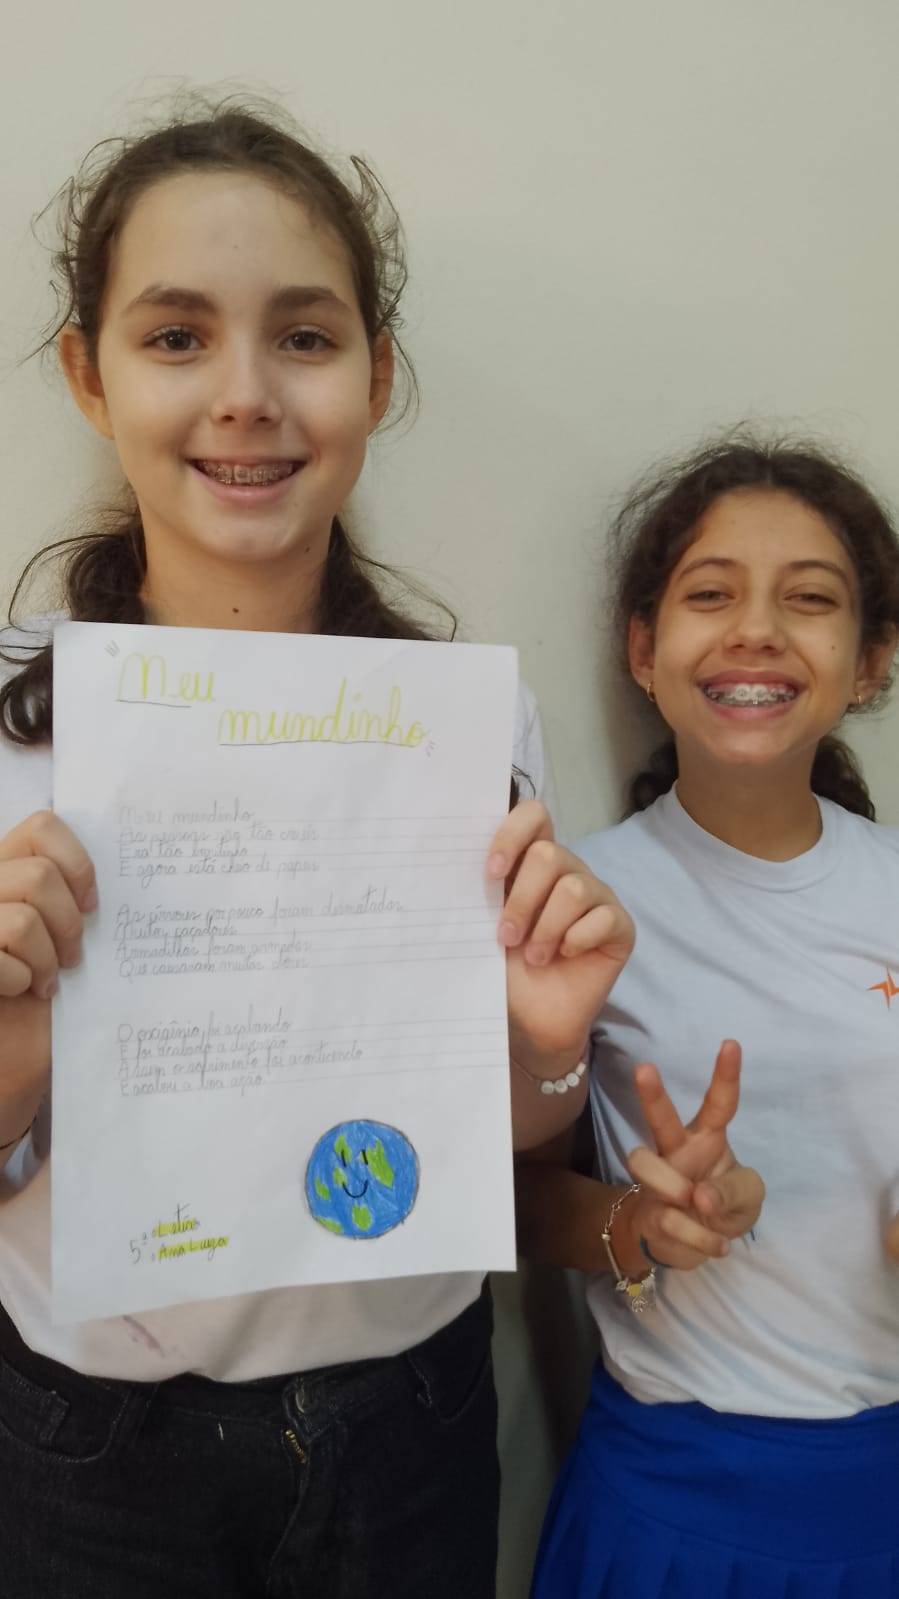 Meu
mundinho
Meu mundinho
As pessoas não tão
Era tão bonitinho
E agora está cheio de papeis
As árvores por pouco foram desmatadas
Muitos caçadores
Armadilhas foram armadas
Que causaram muitas dores
O oxigênio foi acabando
E foi acabado a diversão
Assim o sofrimento foi acontecendo
E acabou a boa ação.
5ª Letícia
Ana Luiza